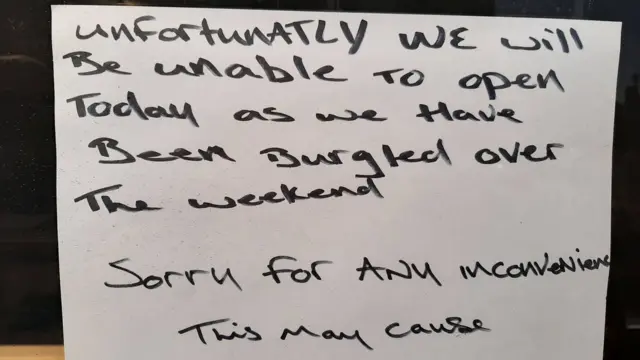 unfortunATLY WE will
Be unable To open
Today as we Have
Been Burgled over
The weekend
Sorry for ANY inconvenienc
This May cause